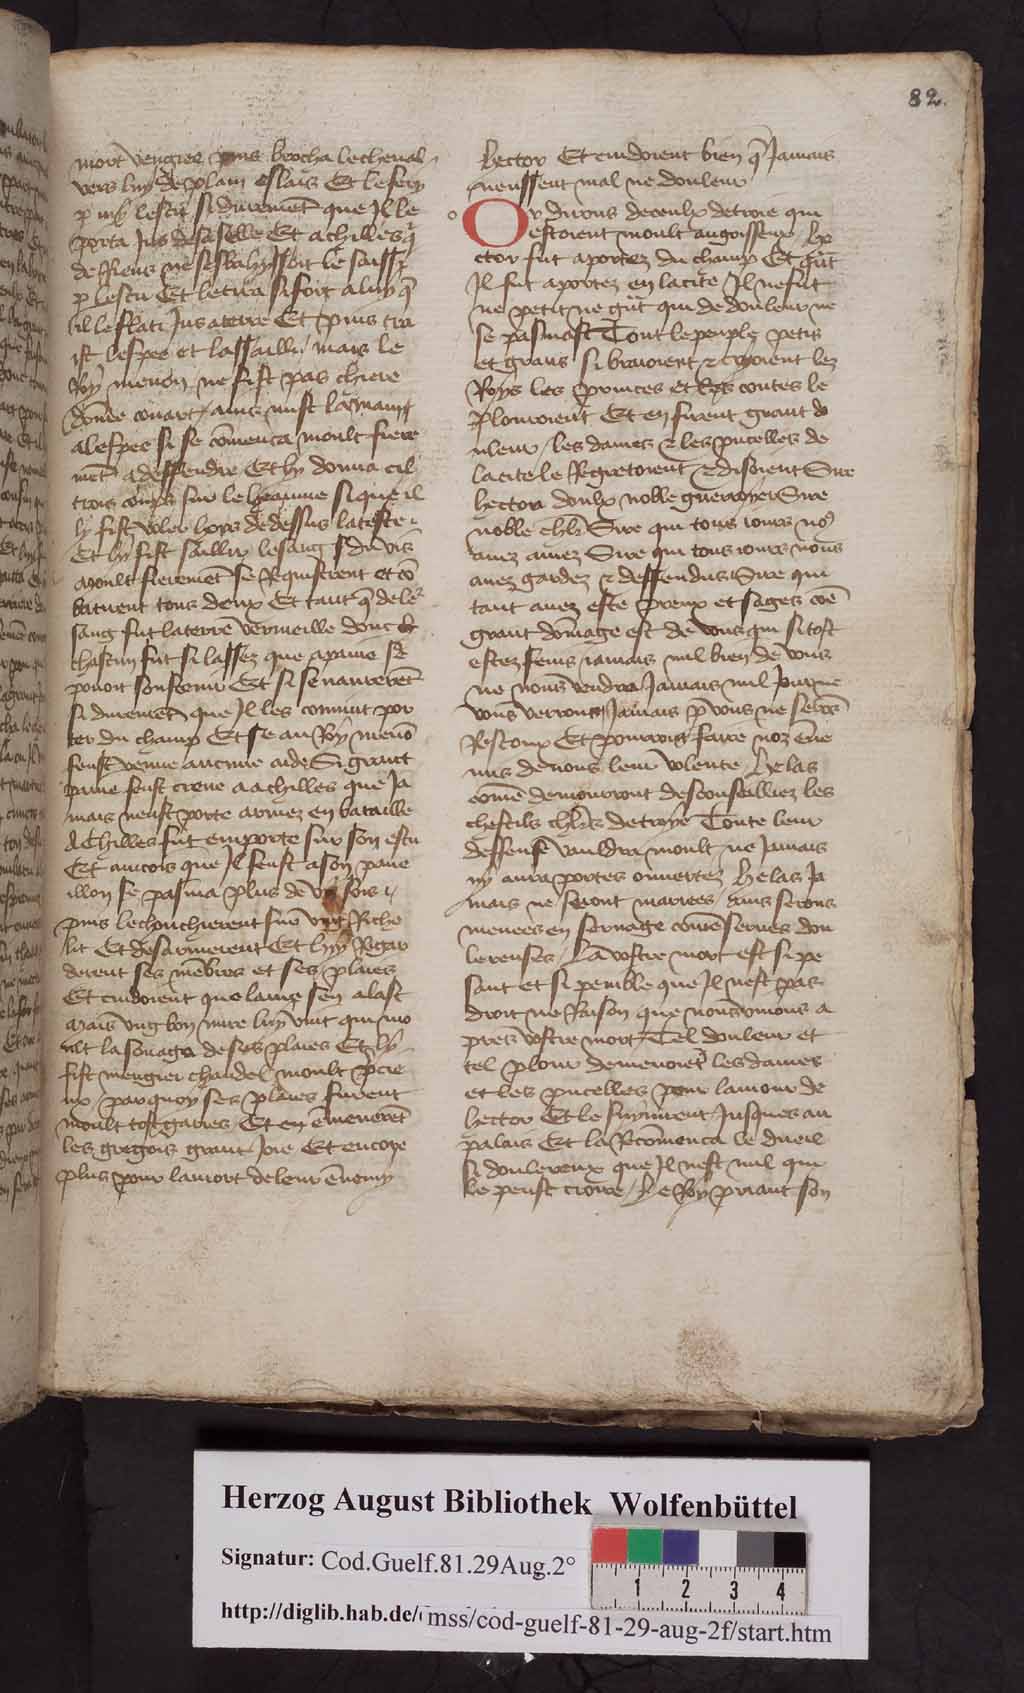 82.
mort vengiee puis brocha le cheual
vers luy de plain eslais Et le fery
p my lescu si duremēt que Il le
porta Jus de sa selle Et achilles q̄
de riens ne sesbahyssoit le saisist
p lescu Et le tira si fort a luy q̄
il le flati Jus a terre Et puis tra
ist lespee et lassailli / mais le
Roy menon ne fist pas chiere
dōme couart / ains mist la main
a lespee si se cōmenca moult fiere
mēt a deffendre Et ly donna cil
trois coups sur le heaume si que il
ly fist voler hors de dessus la teste
Et ly fist saillir le sang du vis
Moult fieremēt se Requistrent et cō
batirent tous deux Et tant q̄ de le
sang fut la terre vermeille donc
chascun fut si lassez que a paine se
pouoit soustenir Et si se naurerēt
si duremēt que Il les conuint por
ter du champ Et se au Roy menō
feust venue aucune aide Si grant
paine feust creue a achilles que Ja
mais neust porte armez en bataille
Achilles fut emporte sur son escu
Et aincois que Il feust a son paue
illon se pasma plus de vii fois
puis le chouchierent sus vng Riche
lit Et desarmerent Et luy Regar
derent ses mēbres et ses plaies
Et cuidoient que lame sen alast
Mais vng bon mire luy vint qui mo
ult la souaga de ses plaies Et ly
fist mengier chaudel moult pcie
ux / par quoy ses plaies furent
moult tost garies Et en ēmenerēt
les gregois grant Joie Et encore
plus pour la mort de leur ēnemy
hector Et cuidoient bien q̄ Jamais
neussent mal ne douleur
Or dirons de ceulx de troie qui
estoient moult angoisseux He
ctor fut aportez du champ Et q̄nt
Il fut aportez en la cite Il ne fut
ne petit ne g̃nt qui de douleur ne
se pasmast Tout le peuple petis
et grans si braioient & crioient lez
Roys les princes et les contes le
Plouroient Et en firent grant do
uleur / les dames & les pucelles de
la cite le Regretoient & disoient Sire
hector doulx noble guerroyer Sire
noble chlr Sire qui tous iours no9
auez amez Sire qui tous iours nous
auez gardez & deffendus Sire qui
tant auez este preux et sages cōe
grant dōmage est de vous qui si tost
estez fenis iamais nul bien de vous
ne nous vendra Jamais nul Jour ne
vous verrons Jamais p vous ne serōs
Rescoux Et pourront faire noz ēne
mis de nous leur volente Helas
cōmē demourront desconseilliez les
chestifs chlrs de troye Toute leur
deffense vauldra moult ne Jamais
ny aura portes ouuertez Helas Ja
mais ne seront mariees / ains serons
menees en seruage cōme serues dou
lereuses / La vostre mort est si pe
sant et si penible que Il nest pas
droit ne Raison que nous viuons a
pres vostre mort / Tel douleur et
tel plour demenoiēt les dames
et les pucelles pour lamour de
hector Et le suyuirent Jusques au
palais Et la Rcōmenca le dueil
si doulereux que Il nest nul qui
le peust croire / Le Roy priant son
Herzog August Bibliothek Wolfenbüttel
Signatur: Cod.Guelf.81.29Aug.2°
http://diglib.hab.de/mss/cod-guelf-81-29-aug-2f/start.htm
1 2 3 4